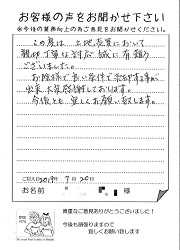 お客様の声をお聞かせ下さい
※今後の業務向上の為ご意見をお聞かせください。
この度は、土地売買において
親切丁寧な対応誠に有難う
ございました。
お陰様で良い条件で売却する事が
出来大変感謝しております。
今後とも宜しくお願い致します。
ご記入日2019年 7月20日
お名前 様
貴重なご意見ありがとうございました!
今後も頑張りますので
宜しくお願い致します